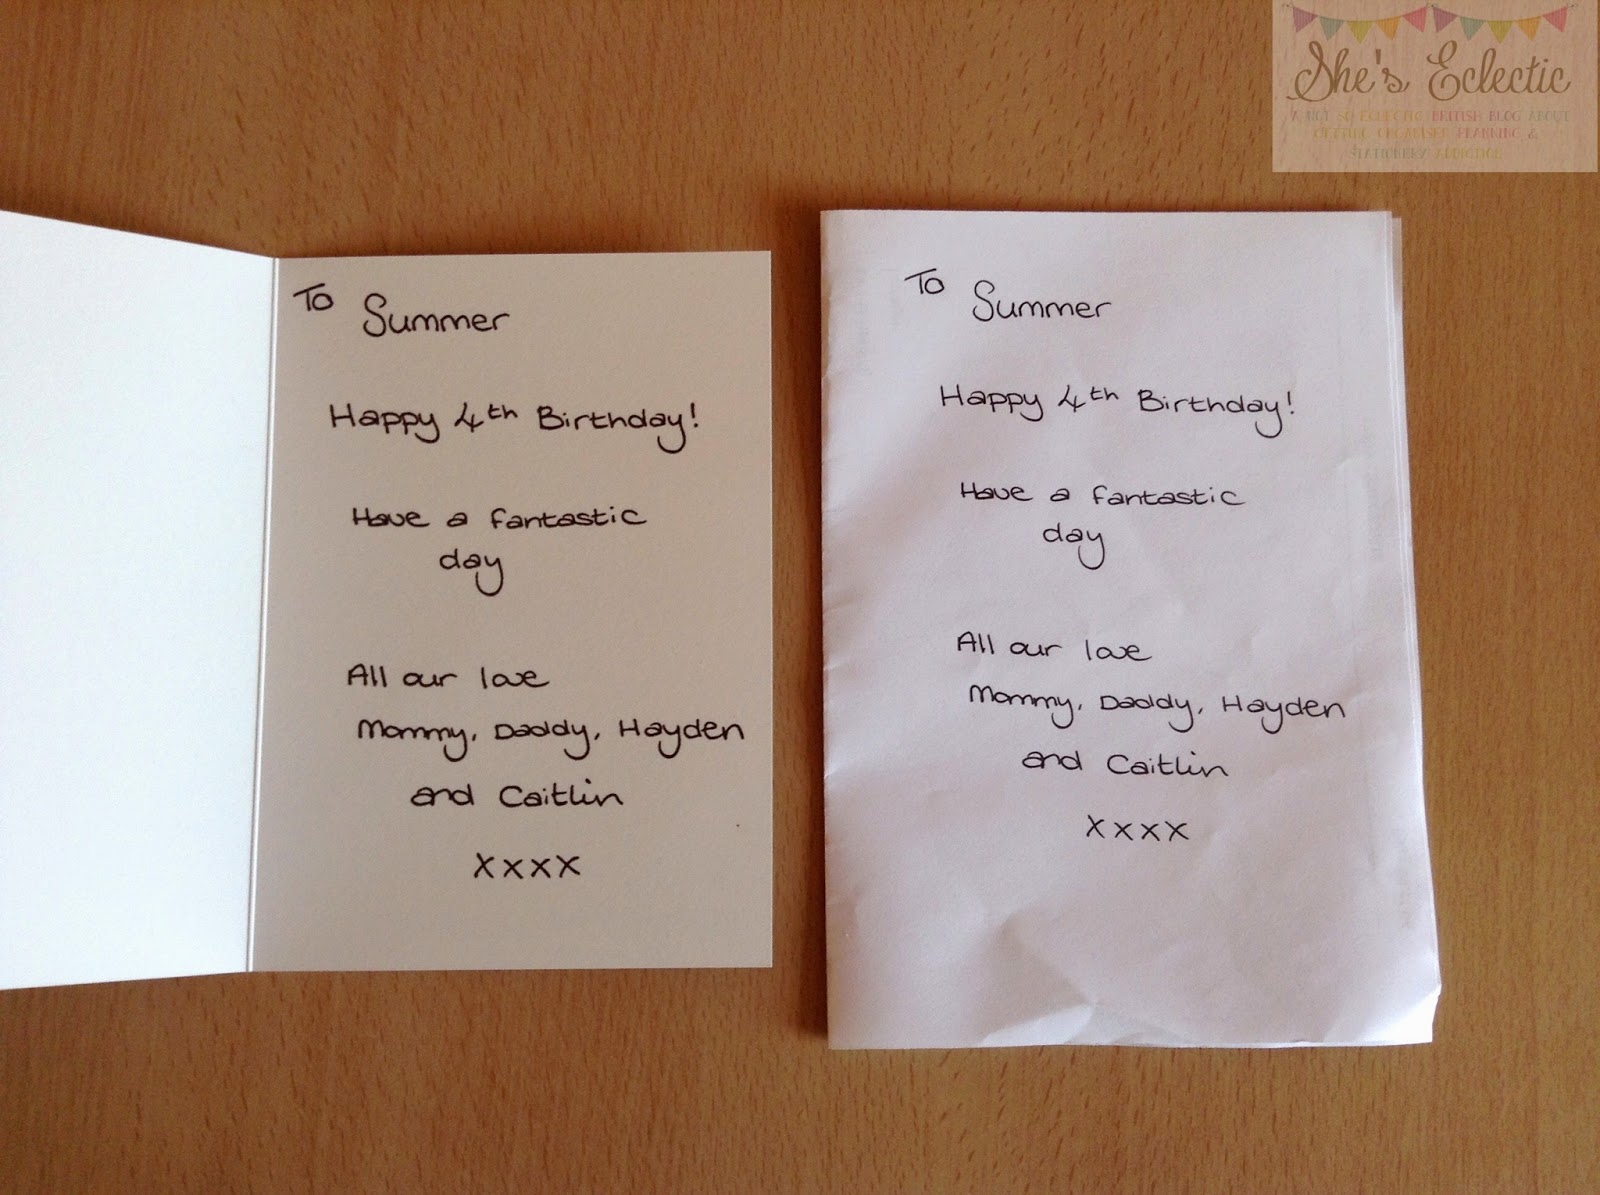 She's Eclectic
A NOT SO ECLECTIC BRITISH BLOG ABOUT
GETTING ORGANISED PLANNING &
STATIONERY ADDICTION
To Summer
Happy 4th Birthday!
Have a fantastic
day
All our love
Mommy, Daddy, Hayden
and Caitlin
xxxx
To Summer
Happy 4th Birthday!
Have a fantastic
day
All our love
Mommy, Daddy, Hayden
and Caitlin
xxxx